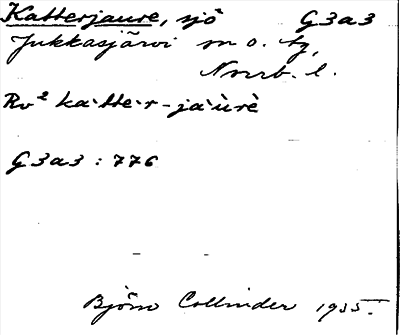 Katterjaure, sjö G3a3
Jukkasjärvi sn o. tg,
Norrb. l.
Rv² ka·tte·r-ja·ùrè
G3a3 : 776
Björn Collinder 1935